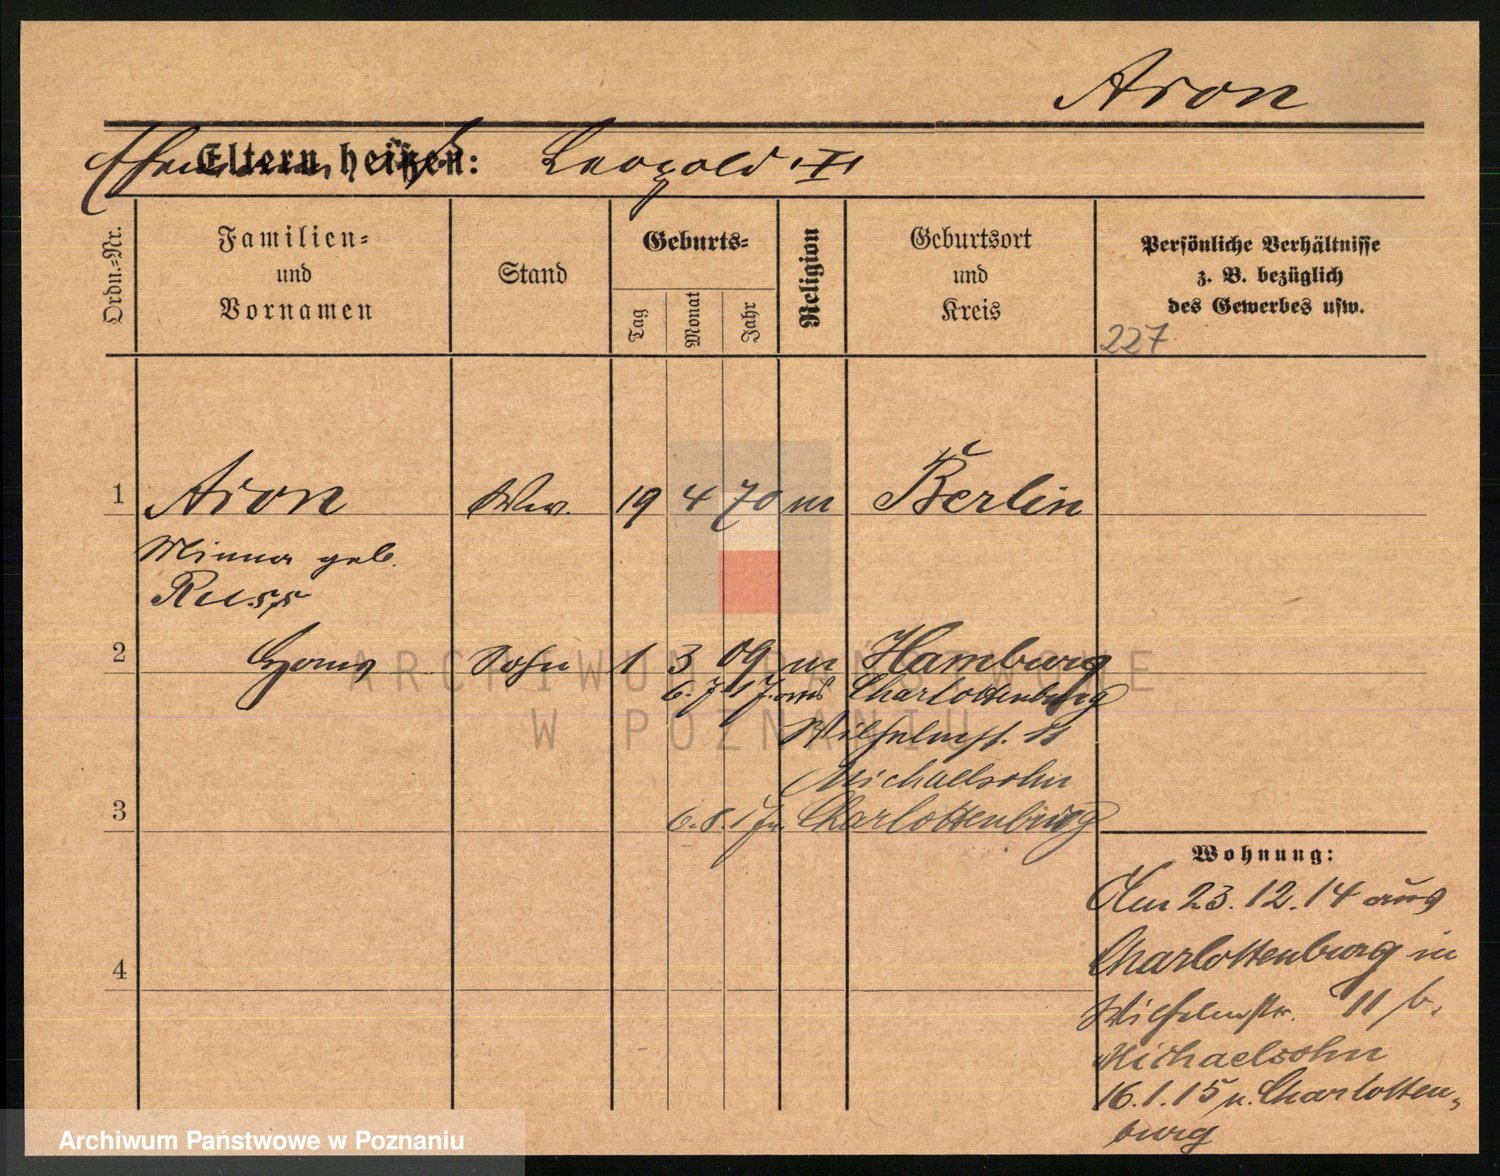 Aron
Eltern heißen: Leopold I
Ordn.-Nr.
Familien-
und
Vornamen
Stand
Geburts-
Tag
Monat
Jahr
Religion
Geburtsort
und
Kreis
Persönliche Verhältnisse
z. B. bezüglich
des Gewerbes usw.
227
1 Aron Ww. 19 4 70 m Berlin
Minna geb.
Russ
2 Hans Sohn 1 3 09 m Hamburg
6. 7. 17. aus Charlottenburg
Wilhelmst. 11
Michaelsohn
3 6. 8. 17 n. Charlottenburg
4
Wohnung:
Am 23.12.14 aus
Charlottenburg in
Wilhelmstr. 11 b.
Michaelsohn
16.1.15 n. Charlotten-
burg
ARCHIWUM PAŃSTWOWE
W POZNANIU
Archiwum Państwowe w Poznaniu